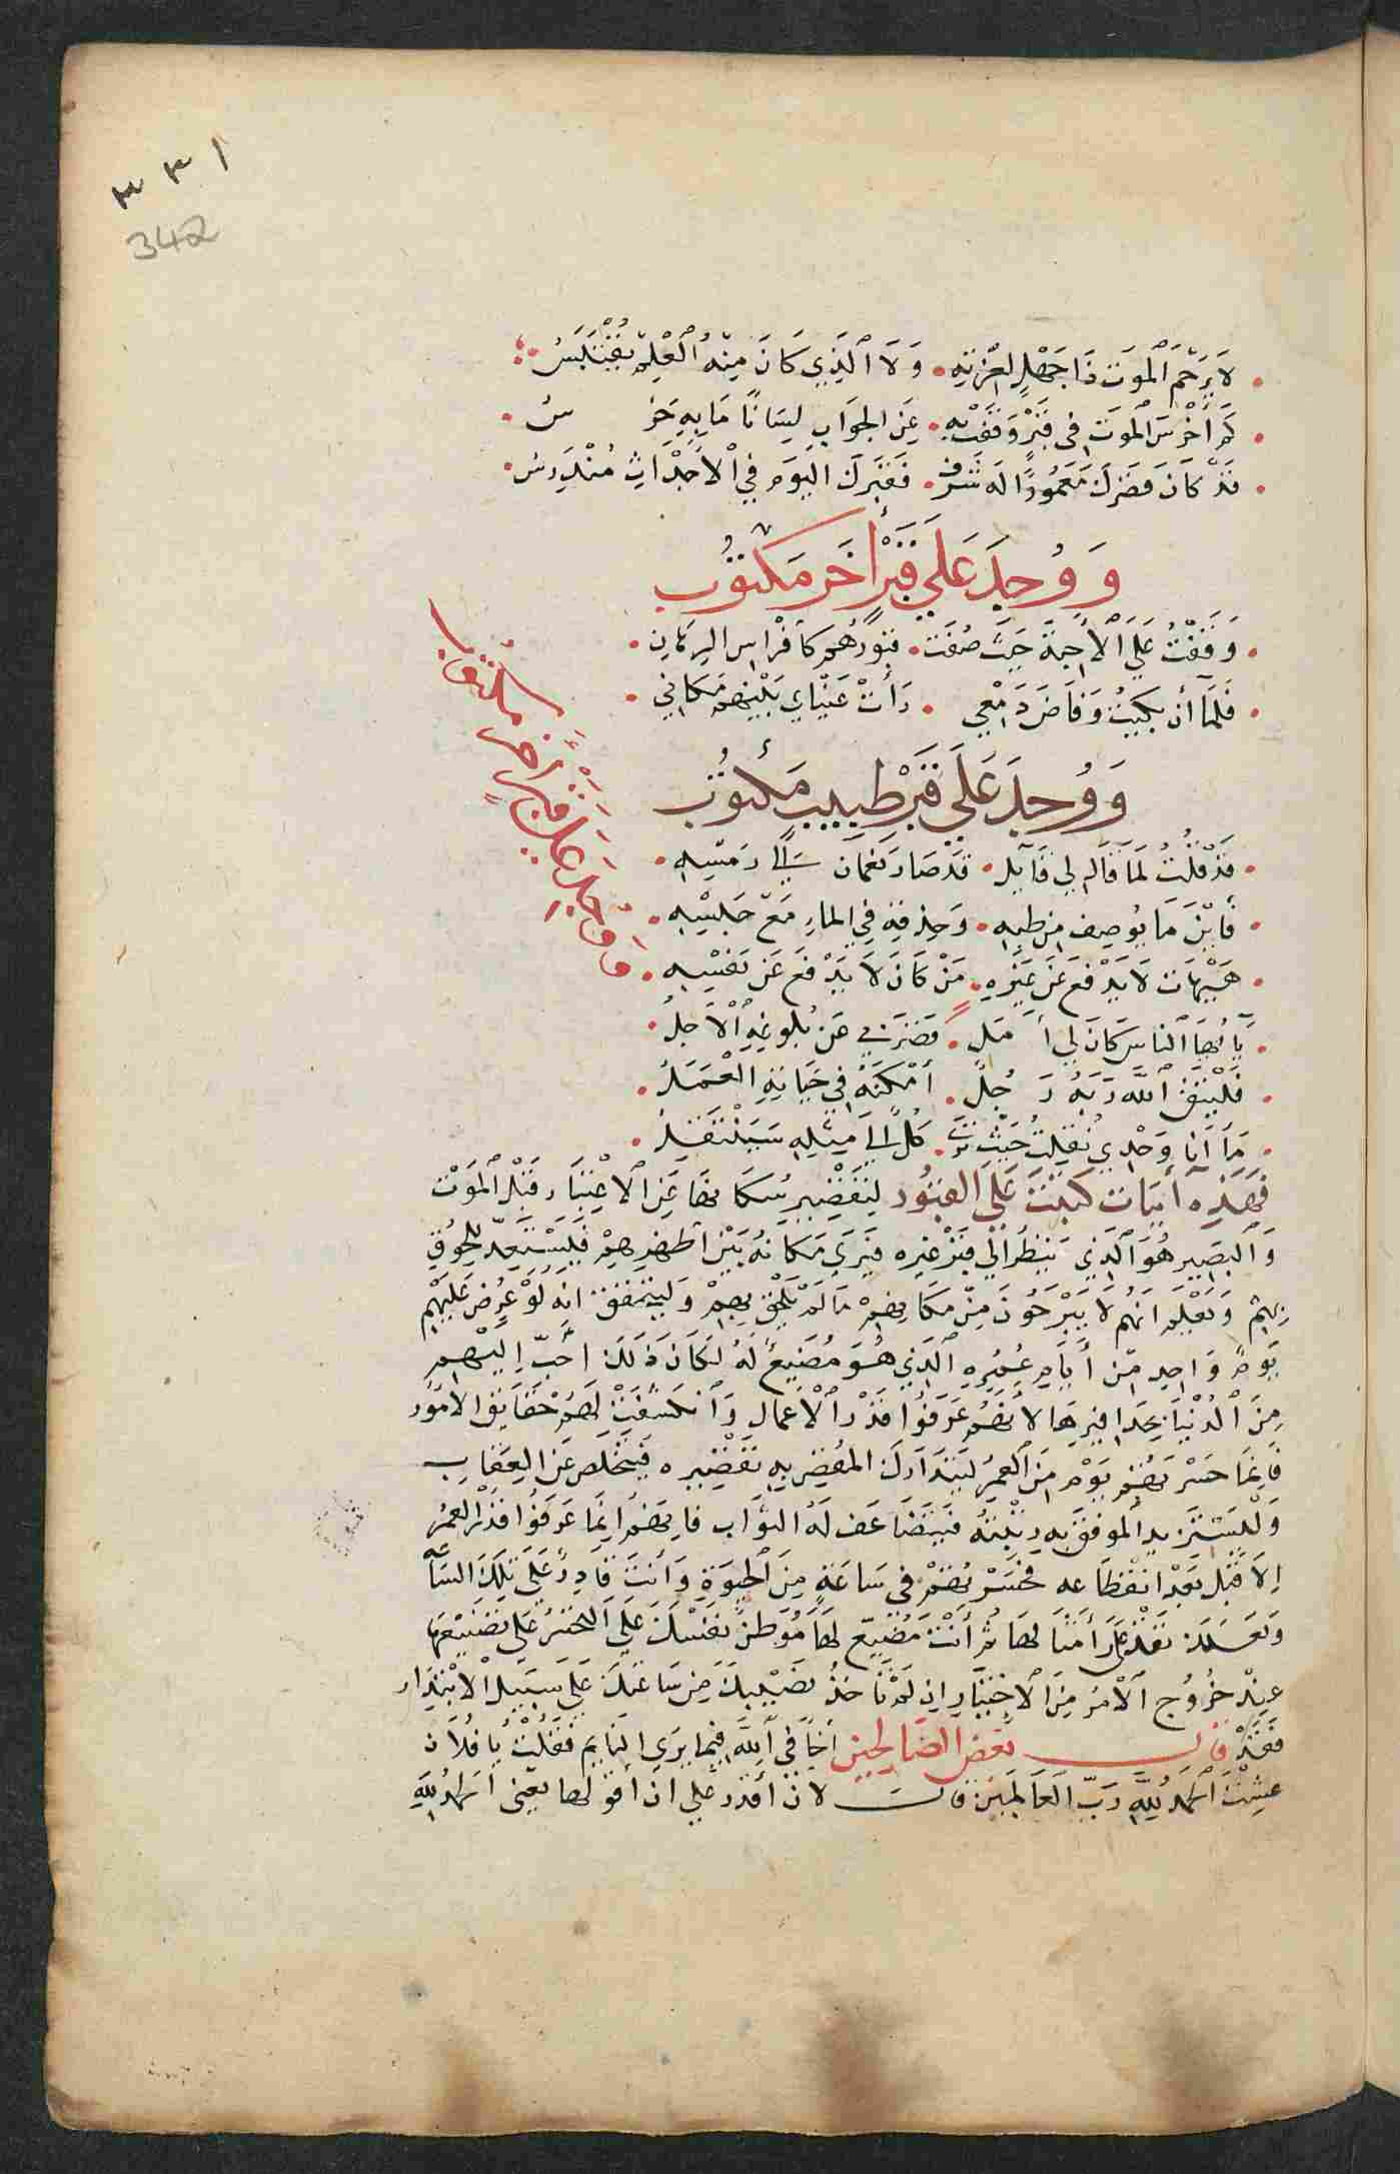 ٣٣١
342
لَا يَرْحَمُ الْمَوتُ ذَا جَهْلٍ لعِزَّتِهِ • وَلَا الَّذِي كَانَ مِنْهُ الْعِلْمُ يُقْتَبَسُ
كَمْ أَخْرَسَ الْمَوتُ فِي قَبْرٍ وَقَفْتَ بِهِ • عَنِ الجَوَابِ لِسَانًا مَا بِهِ خَرَ سُ •
قَدْ كَانَ قَصْرُكَ مَعْمُورًا لَهُ شَرَف • فَقَبْرُكَ اليَومَ فِي الْأَجْدَاثِ مُنْدَرِسُ •
وَوُجِدَ عَلَي قَبْرٍ أَخَر مَكْتُوب
وَقَفْتُ عَلَي الْأَحِبَّةِ حِينَ صُفَّت • قبُورُهُم كَأَفْرَاسِ الرِهَانِ •
فَلَمَّا أن بَكَيْتُ وَفَاضَ دَمْعِي • رَأَتْ عَيْنَاي بَيْنَهُم مَكَانِي •
وَوُجِدَ عَلَي قَبْرِ طبِيبٍ مَكْتُوب
قَدْ قُلْتُ لَمَّا قَالَ لِي قَايِل • قَد صَارَ لُقمَان الي رَمْسِهِ •
فَأيْنَ مَا يُوصَف مِن طِبِّهِ • وَحِذقِهِ فِي المَاءِ مَعْ حَبْسِهِ •
هَيْهَات لَا يَدْفَع عَن غَيْرِهِ • مَنْ كَانَ لَا يَدْفَع عَن نَفْسِهِ •
وَوُجِدَ عَلَي قَبْرٍ أَخَرْ مَكْتُوب
يَا أَيُّهَا النَّاسُ كَانَ لِي أَمَل • قَصَّرَ بِي عَن بُلُوغِهِ الْأَجَلُ •
فَلْيَتَّقِ اللَّهَ رَبَّهُ رَجُلٌ • أَمْكَنَهُ فِي حَيَاتِهِ الْعَمَلُ •
مَا أَنَا وَحْدِي نُقِلتُ حَيْثُ تَرَي • كُلٌّ الَي مِثْلِهِ سَيَنْتَقِلُ •
فَهَذِهِ أَبْيَات كُتِبَتْ عَلَي القُبُور لِتَقْصِيرِ سُكَانِهَا عَنِ الْاعْتِبَارِ قَبْلَ الْمَوْت
وَالْبَصِير هُوَ الَّذِي يَنْظُر الَي قَبْر غَيْره فَيَرَي مَكَانَهُ بَيْنَ اظْهُرِهِمْ فَيَسْتَعِدّ للحُوْقِ
بِهِمْ وَيَعْلَم انَهُم لَا يَبْرَحُونَ مِنْ مَكَانِهِمْ مَا لَمْ يَلْحَق بِهِمْ وَليَتَحَقَق انَه لَوْ عُرِضَ عَلَيْهِم
يَومٌ وَاحِدٍ مِّن أَيَّامِ عُمْرِهِ الَّذِي هُوَ مُضَيِعٌ لَهُ لَكَانَ ذَلِكَ احَبّ إِلَيْهِم
مِنَ الْدُنْيَا بِحَذَافِيرِهَا لأَنَهُم عَرَفُوا قَدْرَ الْأَعْمَالِ وَانْكَشَفَتْ لَهُمْ حَقَايِقُ الأمُور
فَإِنَّمَا حَسْرتهُم بِيَوْم مِنَ الْعمُر لِيَتَدَارَكَ المُقَصِّر بِهِ تَقْصِيرِه فَيَتَخَلَص عَنِ العِقَاب
وَلْيَسْتَزِيد الموفق بِهِ رتْبَتُهُ فَيَتَضَاعَف لَهُ الثوَّاب فَإِنَهُم إِنَّمَا عَرَفُوا قَدْر العمُر
إِلَا قَبْلَ بَعْد انْقِطَاعه فَحَسْرتهُمْ فِي سَاعَةٍ مِنَ الْحَيوةِ وَأَنتَ قَادِرٌ عَلَي تِلْكَ السَّاعَة
وَلَعَلَكَ تَقْدِر عَلَي أمْثَالِهَا ثُمَّ أَنْتَ مُضَيّع لَهَا فَوَطِنْ نَفْسَكَ عَلَي التحسّر عَلَي تَضْيِيْعِهَا
عِنْد خُرُوج الْأَمْرِ مِنَ الْاخْتِيَارِ ان لَمْ تَأْخُذُ نَصْيِبَكَ مِن سَاعَتكَ عَلَي سَبِيل الْابْتِدَار
فَقَدْ قَال بَعْض الصَّالِحِين أَخًا فِي اللَّهِ فِيمَا يَرَي النَّايِم فَقُلْتُ يَا فُلَان
عِشْتَ الْحَمْدُ لِلَّهِ رَبّ الْعَالَمِين قَالَ لأن أَقْدِر عَلَي ان أقولهَا يَعْنِي الحَمْدُ لِلَّهِ